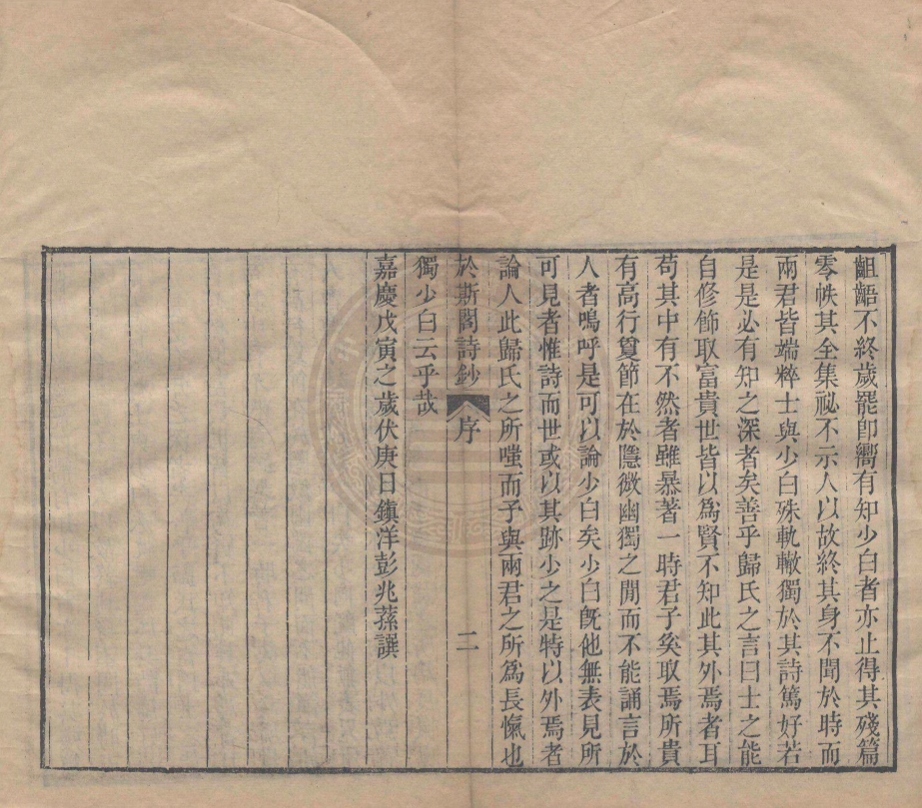 齟齬不終歲罷卽嚮有知少白者亦止得其殘篇
零帙其全集祕不示人以故終其身不聞於時而
兩君皆端粹士與少白殊軌轍獨於其詩篤好若
是是必有知之深者矣善乎歸氏之言曰士之能
自修飾取富貴世皆以爲賢不知此其外焉者耳
苟其中有不然者雖暴著一時君子奚取焉所貴
有高行敻節在於隱微幽獨之閒而不能誦言於
人者嗚呼是可以論少白矣少白旣他無表見所
可見者惟詩而世或以其跡少之是特以外焉者
論人此歸氏之所嗤而予與兩君之所爲長愾也
於斯閣詩鈔 序 二
獨少白云乎哉
嘉慶戊寅之歲伏庚日鎭洋彭兆蓀譔